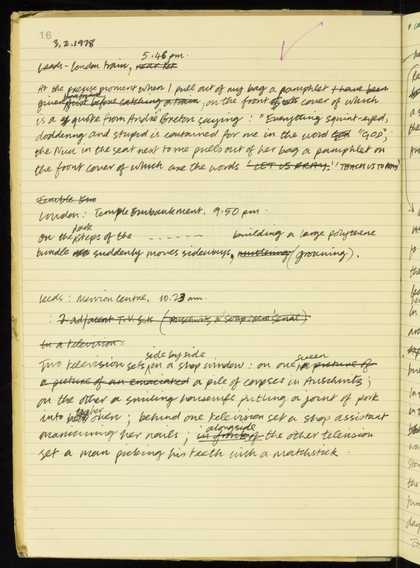 16
3.2.1978
5.46 pm.
Leeds-London train,
At the precise moment when I pull out of my bag a pamphlet I have been
given just before catching a train, on the front of its cover of which
is a quote from André Breton saying: "Everything squint-eyed,
doddering and stupid is contained for me in the word GOD",
the Nun in the seat next to me pulls out of her bag a pamphlet on
the front cover of which are the words 'LET US PRAY.' 'TEACH US TO PRAY'
London: Temple Embankment. 9.50 pm.
back
On the steps of the - - - - - - building a large polythene
bundle suddenly moves sideways, muttering (groaning).
Leeds: Merrion Centre, 10.23 am.
: 2 adjacent T.V. sets (Auschwitz & soap opera serial)
In a television
side by side
screen
Two television sets, in a shop window: on one, a picture of
a picture of an emaciated a pile of corpses in Auschwitz;
on the other a smiling housewife putting a joint of pork
into oven; behind one television set a shop assistant
alongside
manicuring her nails; in front of the other television
set a man picking his teeth with a matchstick.